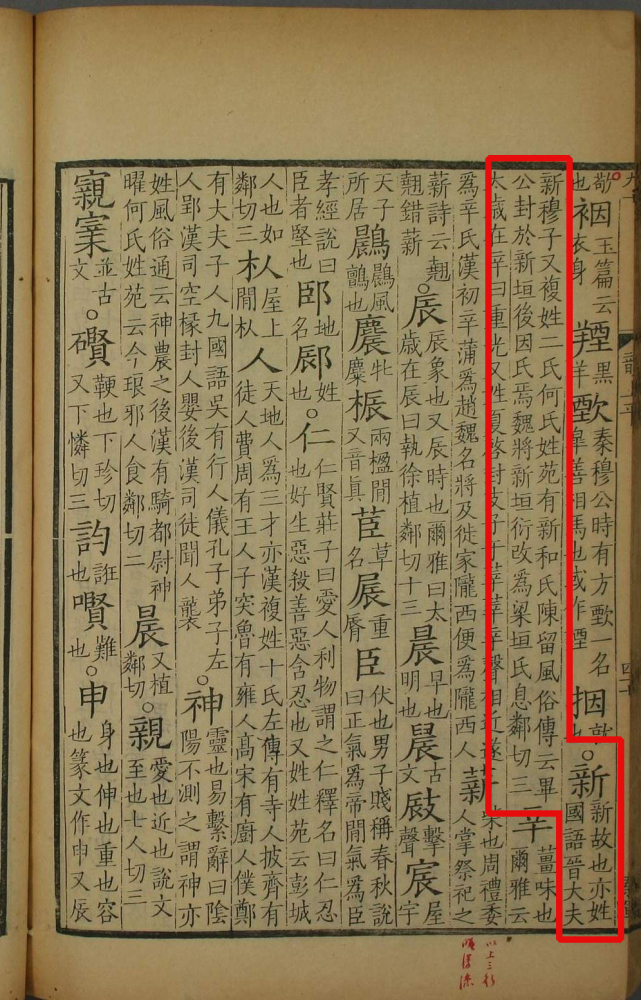 也裀玉篇云衣身 黑羊歅秦穆公時有方歅一名皐善相馬也或作煙捆就也○新新故也亦姓國語晉大夫
新穆子又複姓二氏何氏姓苑有新和氏陳留風俗傳云畢公封於新垣後因氏焉魏將新垣衍改爲梁垣氏息鄰切三辛薑味也爾雅云
太歲在辛曰重光又姓夏啓封支子于莘莘辛聲相近遂爲辛氏漢初辛蒲爲趙魏名將及徙家隴西便爲隴西人薪柴也周禮委人掌祭祀之
薪詩云翹翹錯薪○辰辰象也又辰時也爾雅曰太歲在辰曰執徐植鄰切十三晨早也明也曟古文㪜擊聲宸屋宇
天子所居鷐鷐風鸇也麎牝麋桭兩楹閒又音眞茞草名 重脣臣伏也男子賤稱春秋說曰正氣爲帝閒氣爲臣
孝經說曰臣者堅也䢻地名 姓也○仁仁賢莊子曰愛人利物謂之仁釋名曰仁忍也好生惡殺善惡含忍也又姓姓苑云彭城
人也如鄰切三朲屋上閒朲人天地人爲三才亦漢複姓十氏左傳有寺人披齊有徒人費周有王人子突魯有雍人高宋有廚人僕鄭
有大夫子人九國語吳有行人儀孔子弟子左人郢漢司空掾封人嬰後漢司徒聞人襲○神靈也易繫辭曰陰陽不測之謂神亦
姓風俗通云神農之後漢有騎都尉神曜何氏姓苑云今琅邪人食鄰切二晨又植鄰切○親愛也近也說文至也七人切三
寴㝯並古文○礥鞕也下珍切又下憐切三 誑也 難也○申身也伸也重也容也篆文作申又辰
以上三行